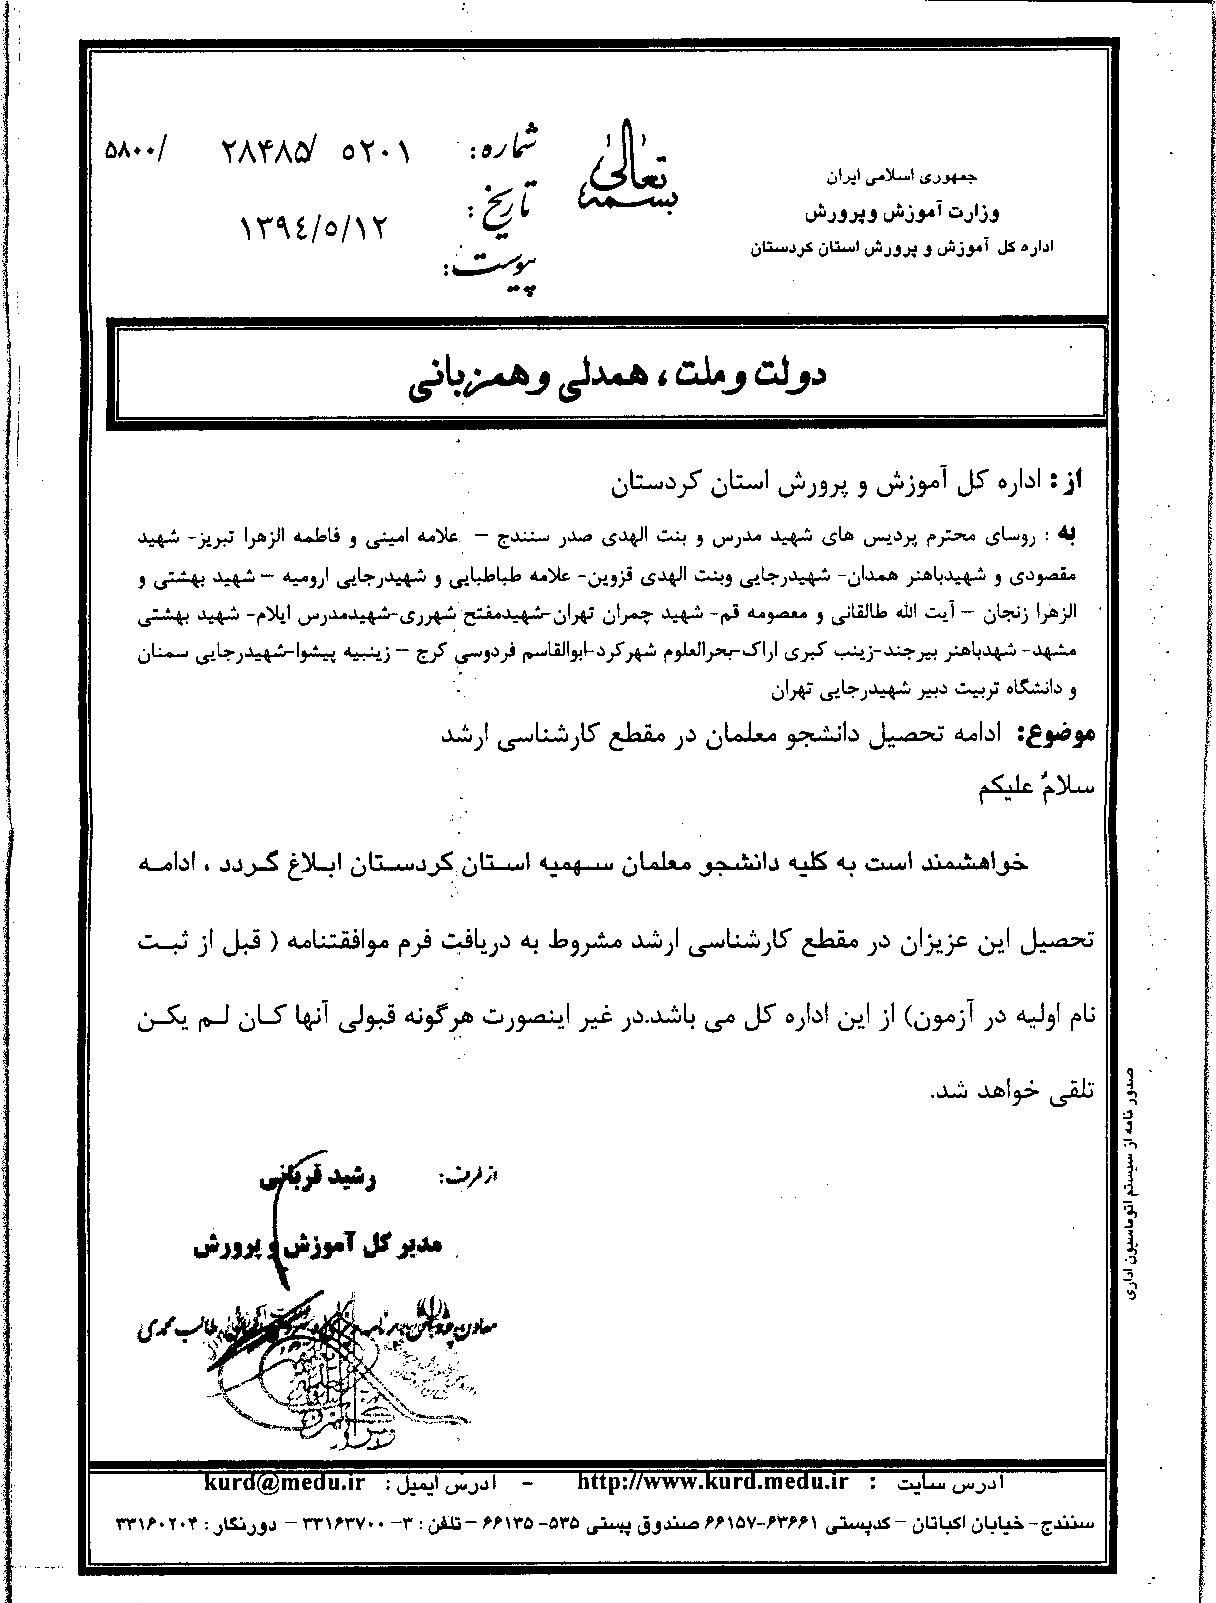 بسمه تعالی
جمهوری اسلامی ایران
وزارت آموزش و پرورش
اداره کل آموزش و پرورش استان کردستان
شماره: ۵۲۰۱ /۲۸۴۸۵ /۵۸۰۰
تاریخ: ۱۳۹٤/۵/۱۲
پیوست:
دولت و ملت، همدلی و همزبانی
از: اداره کل آموزش و پرورش استان کردستان
به : روسای محترم پردیس های شهید مدرس و بنت الهدی صدر سنندج – علامه امینی و فاطمه الزهرا تبریز- شهید
مقصودی و شهیدباهنر همدان- شهیدرجایی وبنت الهدی قزوین- علامه طباطبایی و شهیدرجایی ارومیه – شهید بهشتی و
الزهرا زنجان – آیت الله طالقانی و معصومه قم- شهید چمران تهران-شهیدمفتح شهرری-شهیدمدرس ایلام- شهید بهشتی
مشهد- شهدباهنر بیرجند-زینب کبری اراک-بحرالعلوم شهرکرد-ابوالقاسم فردوسی کرج – زینبیه پیشوا-شهیدرجایی سمنان
و دانشگاه تربیت دبیر شهیدرجایی تهران
موضوع: ادامه تحصیل دانشجو معلمان در مقطع کارشناسی ارشد
سلامٌ علیکم
خواهشمند است به کلیه دانشجو معلمان سهمیه استان کردستان ابلاغ گردد ، ادامه
تحصیل این عزیزان در مقطع کارشناسی ارشد مشروط به دریافت فرم موافقتنامه ( قبل از ثبت
نام اولیه در آزمون) از این اداره کل می باشد.در غیر اینصورت هرگونه قبولی آنها کان لم یکن
تلقی خواهد شد.
از طرف: رشید قربانی
مدیر کل آموزش و پرورش
طالب محمدی
صدور نامه از سیستم اتوماسیون اداری
آدرس سایت : http://www.kurd.medu.ir - آدرس ایمیل : kurd@medu.ir
سنندج- خیابان اکباتان – کدپستی ۶۳۶۶۱-۶۶۱۵۷ صندوق پستی ۵۳۵- ۶۶۱۳۵ – تلفن : ۳- ۳۳۱۶۳۷۰۰ – دورنگار : ۳۳۱۶۰۲۰۴